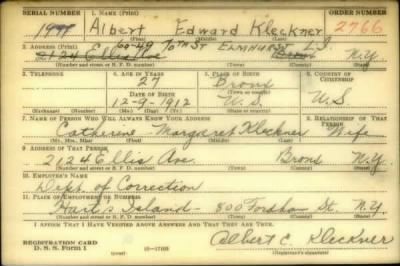 SERIAL NUMBER 1. NAME (Print) ORDER NUMBER
1977 Albert Edward Kleckner 2766
(First) (Middle) (Last)
2. ADDRESS (Print) 60-49 70TH ST ELMHURST L.I.
2124 Ellis Ave Bronx N.Y.
(Number and street or R. F. D. number) (Town) (County) (State)
3. TELEPHONE 4. AGE IN YEARS 5. PLACE OF BIRTH 6. COUNTRY OF CITIZENSHIP
27 Bronx
DATE OF BIRTH (Town or county)
12-9-1912 U.S. U.S.
(Exchange) (Number) (Mo.) (Day) (Yr.) (State or country)
7. NAME OF PERSON WHO WILL ALWAYS KNOW YOUR ADDRESS 8. RELATIONSHIP OF THAT PERSON
Catherine Margaret Kleckner Wife
(Mr., Mrs., Miss) (First) (Middle) (Last)
9. ADDRESS OF THAT PERSON
2124 Ellis Ave. Bronx N.Y.
(Number and street or R. F. D. number) (Town) (County) (State)
10. EMPLOYER'S NAME
Dept. of Correction
11. PLACE OF EMPLOYMENT OR BUSINESS
Hart's Island - 800 Fordham St. N.Y.
(Number and street or R. F. D. number) (Town) (County) (State)
I AFFIRM THAT I HAVE VERIFIED ABOVE ANSWERS AND THAT THEY ARE TRUE.
REGISTRATION CARD
D. S. S. Form 1 (over) 16-17105 Albert E. Kleckner